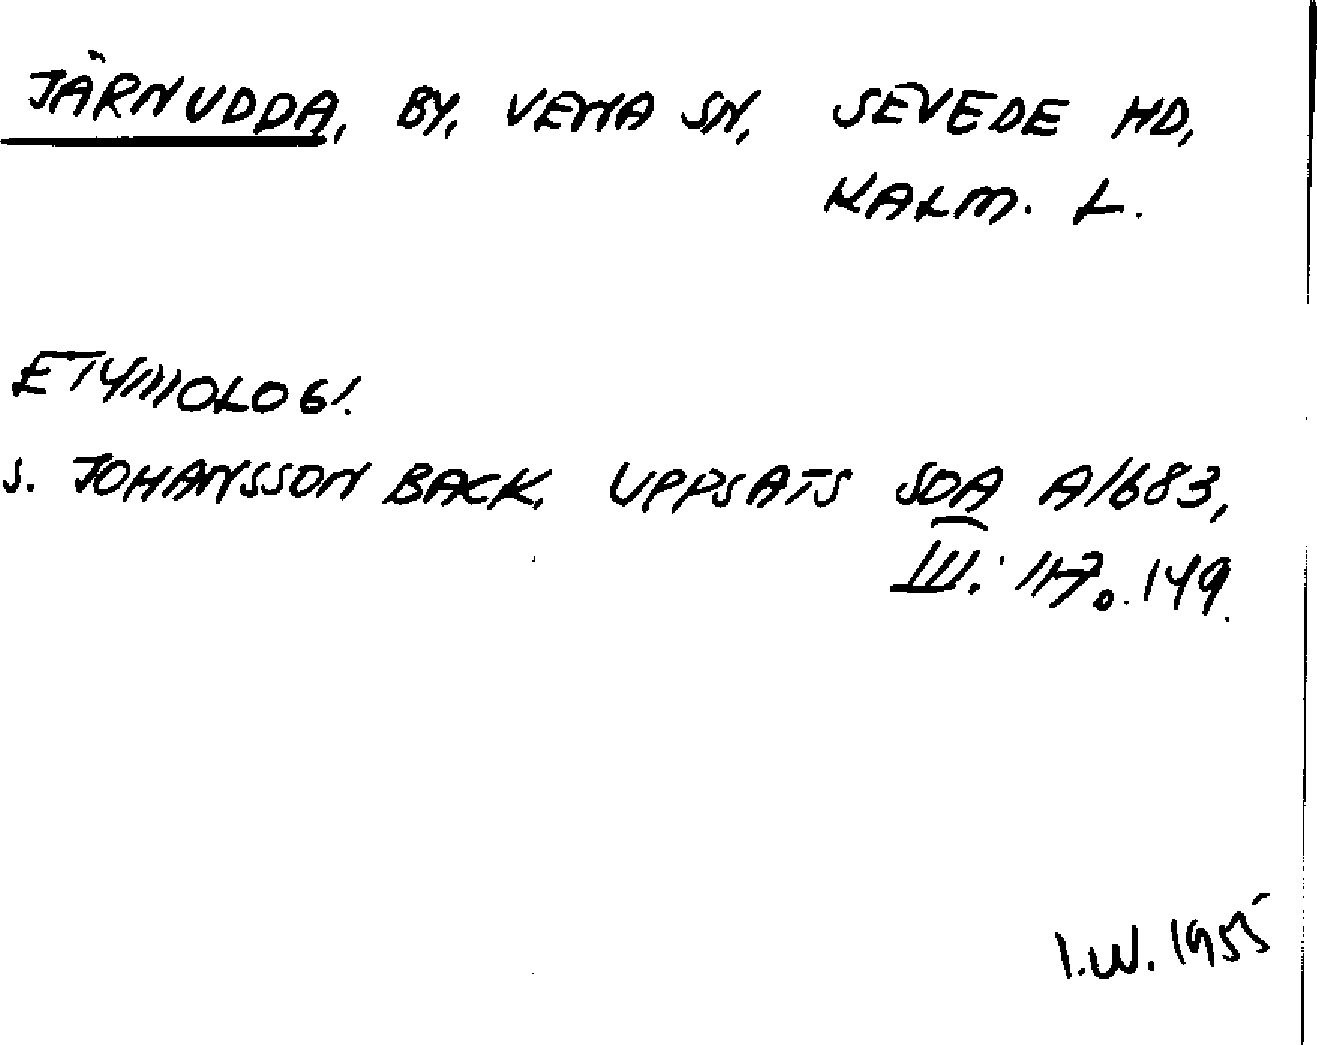 JÄRNUDDA, BY, VENA SN, SEVEDE HD,
KALM. L.
ETYMOLOGI.
S. JOHANSSON BACK, UPPSATS SOA A1683,
III: 117 o. 149.
I.W. 1955